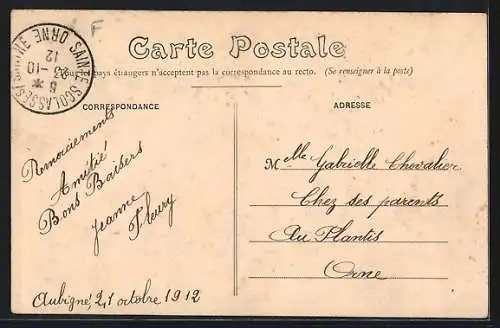 F
SAINTE SCOLASSE S/SARTHE
ORNE
12
23-10
Carte Postale
Tous les pays étrangers n'acceptent pas la correspondance au recto. (Se renseigner à la poste)
CORRESPONDANCE
Remerciements
Amitié
Bons Baisers
Jeanne
Fleury
Aubigné, 21 octobre 1912
ADRESSE
Melle Gabrielle Chevalier
Chez ses parents
Au Plantis
Orne